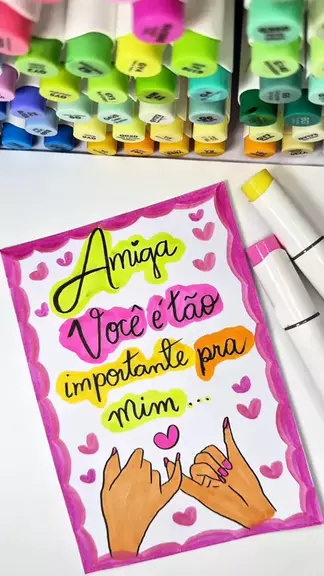 Amiga
Você é tão
importante pra
mim...